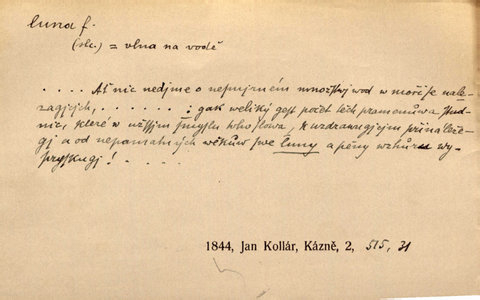 luna f.
(slc.) = vlna na vodě
. . . . Ať nic nedjme o nesmjrném množstwj wod w moři se nale-
zagjcých, . . . . . : gak weliký gest počet těch pramenůw a stud-
nic, které w užssjm smyslu toho slowa, k uzdrawugjcjm přinaleže-
gj a od nepamětných wěkůw swé luny a pěny wzhůru wy-
pryskugj! . . . . .
1844, Jan Kollár, Kázně, 2, 515, 31